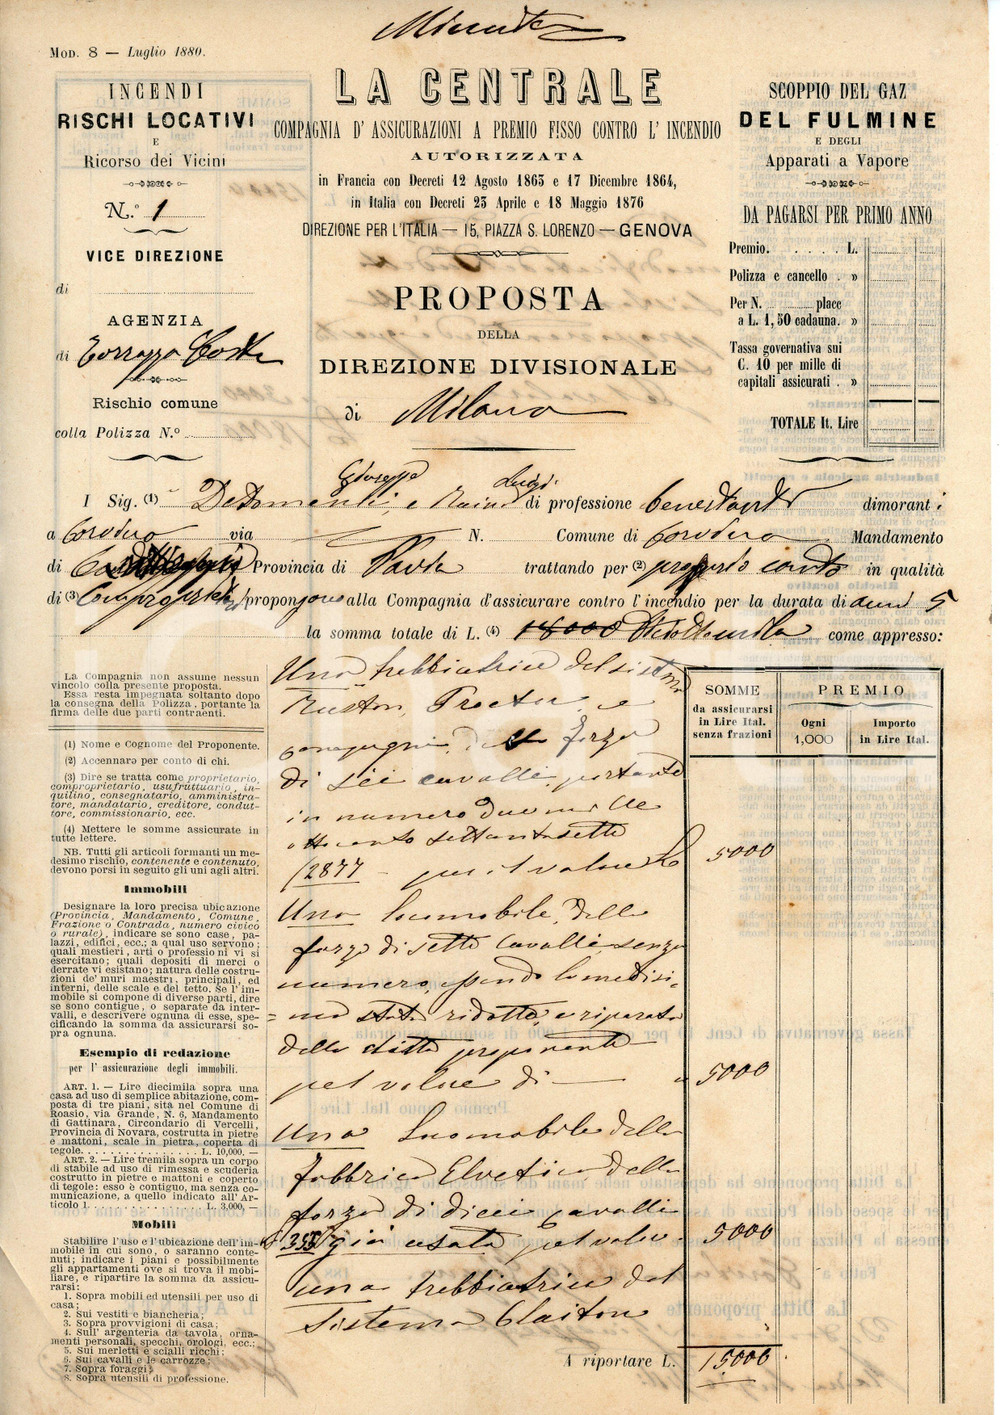 Minuta
MOD. 8 — Luglio 1880.
INCENDI
RISCHI LOCATIVI
E
Ricorso dei Vicini
N.º 1
VICE DIREZIONE
di
AGENZIA
di Torrazza Coste
Rischio comune
colla Polizza N.º
LA CENTRALE
COMPAGNIA D' ASSICURAZIONI A PREMIO FISSO CONTRO L' INCENDIO
AUTORIZZATA
in Francia con Decreti 12 Agosto 1863 e 17 Dicembre 1864,
in Italia con Decreti 23 Aprile e 18 Maggio 1876
DIREZIONE PER L'ITALIA — 15, PIAZZA S. LORENZO — GENOVA
PROPOSTA
DELLA
DIREZIONE DIVISIONALE
di Milano
SCOPPIO DEL GAZ
DEL FULMINE
E DEGLI
Apparati a Vapore
DA PAGARSI PER PRIMO ANNO
Premio. L.
Polizza e cancello . »
Per N. place
a L. 1,50 cadauna. »
Tassa governativa sui
C. 10 per mille di
capitali assicurati . »
TOTALE It. Lire
Giuseppe Luigi
I Sig. (1) e di professione benestanti dimoranti
a via N. Comune di Mandamento
di Provincia di Pavia trattando per (2) proprio conto in qualità
di (3) Comproprietari propongono alla Compagnia d'assicurare contro l'incendio per la durata di anni 5
la somma totale di L. (4) 18000 come appresso:
La Compagnia non assume nessun
vincolo colla presente proposta.
Essa resta impegnata soltanto dopo
la consegna della Polizza, portante la
firma delle due parti contraenti.
(1) Nome e Cognome del Proponente.
(2) Accennare per conto di chi.
(3) Dire se tratta come proprietario,
comproprietario, usufruttuario, in-
quilino, consegnatario, amministra-
tore, mandatario, creditore, condut-
tore, commissionario, ecc.
(4) Mettere le somme assicurate in
tutte lettere.
NB. Tutti gli articoli formanti un me-
desimo rischio, contenente e contenuto,
devono porsi in seguito gli uni agli altri.
Immobili
Designare la loro precisa ubicazione
(Provincia, Mandamento, Comune,
Frazione o Contrada, numero civico
o rurale), indicare se sono case, pa-
lazzi, edifici, ecc.; a qual uso servono;
quali mestieri, arti o professioni vi si
esercitano; quali depositi di merci o
derrate vi esistano; natura delle costru-
zioni de' muri maestri, principali, ed
interni, delle scale e del tetto. Se l' im-
mobile si compone di diverse parti, dire
se sono contigue, o separate da inter-
valli, e descrivere ognuna di esse, spe-
cificando la somma da assicurarsi so-
pra ognuna.
Esempio di redazione
per l' assicurazione degli immobili.
ART. 1. — Lire diecimila sopra una
casa ad uso di semplice abitazione, com-
posta di tre piani, sita nel Comune di
Roasio, via Grande, N. 6, Mandamento
di Gattinara, Circondario di Vercelli,
Provincia di Novara, costrutta in pietre
e mattoni, scale in pietra, coperta di
tegole. L. 10,000. —
ART. 2. — Lire tremila sopra un corpo
di stabile ad uso di rimessa e scuderia
costrutto in pietre e mattoni e coperto
di tegole: esso è contiguo, ma senza co-
municazione, a quello indicato all' Ar-
ticolo 1. L. 3,000, —
Mobili
Stabilire l' uso e l'ubicazione dell'im-
mobile in cui sono, o saranno conte-
nuti; indicare i piani e possibilmente
gli appartamenti ove si trova il mobi-
liare, e ripartire la somma da assicu-
rarsi:
1. Sopra mobili ed utensili per uso di
casa;
2. Sui vestiti e biancheria;
3. Sopra provvigioni di casa;
4. Sull' argenteria da tavola, orna-
menti personali, specchi, orologi, ecc.;
5. Sui merletti e scialli ricchi;
6. Sui cavalli e le carrozze;
7. Sopra foraggi;
8. Sopra utensili di professione.
SOMME
da assicurarsi
in Lire Ital.
senza frazioni
PREMIO
Ogni
1,000
Importo
in Lire Ital.
Una trebbiatrice del sistema
Ruston, Proctor e
compagni della forza
di sei cavalli portante
in numero due mille
ottocento settantasette
(2877 per il valore L 5000
Una locomobile della
forza di sette cavalli, senza
numero, essendo la medesi-
= ma stata ridotta e riparata
dalla ditta proponente
pel valore di — 5000
Una Locomobile della
fabbrica Elvetica della
forza di dieci cavalli
già usata pel valore 5000
una trebbiatrice del
sistema Claiton
A riportare L. 15000